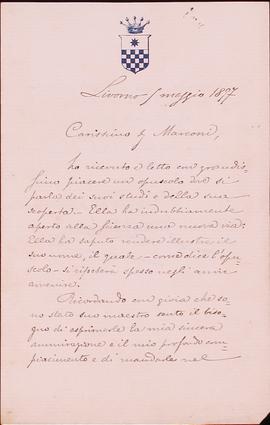 Livorno 5 maggio 1897
Carissimo Sr Marconi,
ho ricevuto e letto con grandis-
simo piacere un opuscolo ove si
parla dei suoi studi e della sua
scoperta. Ella ha indubbiamente
aperto alla scienza una nuova via:
Ella ha saputo rendere illustre il
suo nome, il quale - come dice l'opu-
scolo - si ripeterà spesso negli anni
avvenire.
Ricordando con gioia che so-
no stato suo maestro sento il biso-
gno di esprimerle la mia sincera
ammirazione e il mio profondo com-
piacimento e di mandarle nel